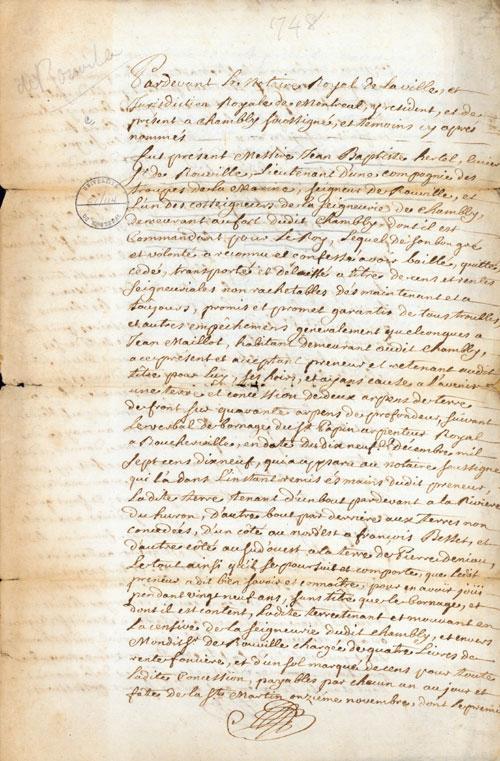 748
de Rouville
Pardevant Le Notaire Royal de la ville, et
Jurisdiction Royale de Montreal, y résident, et de
présent a Chambly Soussigné, et témoins cy apres
nommés
fut présent Messire Jean Baptiste hertel, Ecuier
Sr. de Rouville, Lieutenant d'une compagnie des
troupes de la Marine, Seigneur de Rouville, et
L'un des coseigneurs de la Seigneurie de Chambly,
demeurant au fort dudit Chambly, dont il est
Commandant pour Le Roy, Lequel de son bon gré
et volonté a reconnu et confessé avoir baillé, quitté
cedé, transporté et délaissé a titre de cens et rentes
Seigneuriales non rachetables dés maintenant et a
toujours, promis et promet garantir de tous troubles
et autres empechemens généralement quelconques a
Jean Maillot, habitant demeurant audit Chambly,
a ce present et acceptant preneur et retenant audit
titre pour luy, Ses hoirs, et ayans cause a l'avenir
une terre et concession de deux arpens de terre
de front sur quarante arpens de profondeur, suivant
Le verbal de bornage du Sr. Papin arpenteur Royal
a Boucherville, en date du dixneuf décembre mil
Sept cens dixneuf, qui a apparu au notaire soussigné
qui l'a dans L'instant remis es mains dudit preneur,
Ladite terre tenant d'un bout pardevant a la Riviere
du huron, d'autre bout par derrière aux terres non
concedées, d'un côté au nord'est a françois Besset, et
d'autre côté au sud'ouest a la terre de Pierre deniau,
Le tout ainsi qu'il se poursuit et comporte, que Ledit
preneur a dit bien savoir et connaitre, pour en avoir joüi
pendant vingt neuf ans, sans titre que Le bornage, et
dont il est content, Ladite terre tenant et mouvant en
La censive de la Seigneurie dudit Chambly, et envers
Mondit Sr. de Rouville chargée de quatre Livres de
rente fonciere, et d'un sol marqué de cens pour toute
Ladite Concession, payables par chacun an au jour et
fête de la St. Martin onzieme novembre, dont le premier